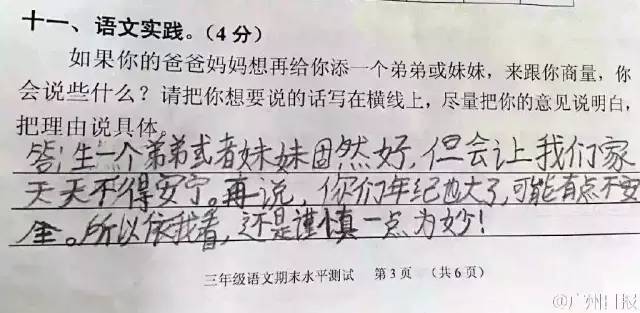 十一、语文实践。(4分)
如果你的爸爸妈妈想再给你添一个弟弟或妹妹,来跟你商量,你
会说些什么?请把你想要说的话写在横线上,尽量把你的意见说明白,
把理由说具体。
答:生一个弟弟或者妹妹固然好,但会让我们家
天天不得安宁。再说,你们年纪也大了,可能有点不安
全。所以依我看,还是谨慎一点为妙!
三年级语文期末水平测试 第3页 (共6页)
@广州日报